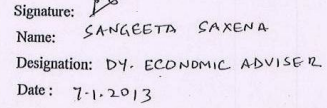 Signature:
Name: SANGEETA SAXENA
Designation: DY. ECONOMIC ADVISER
Date : 7-1.2013